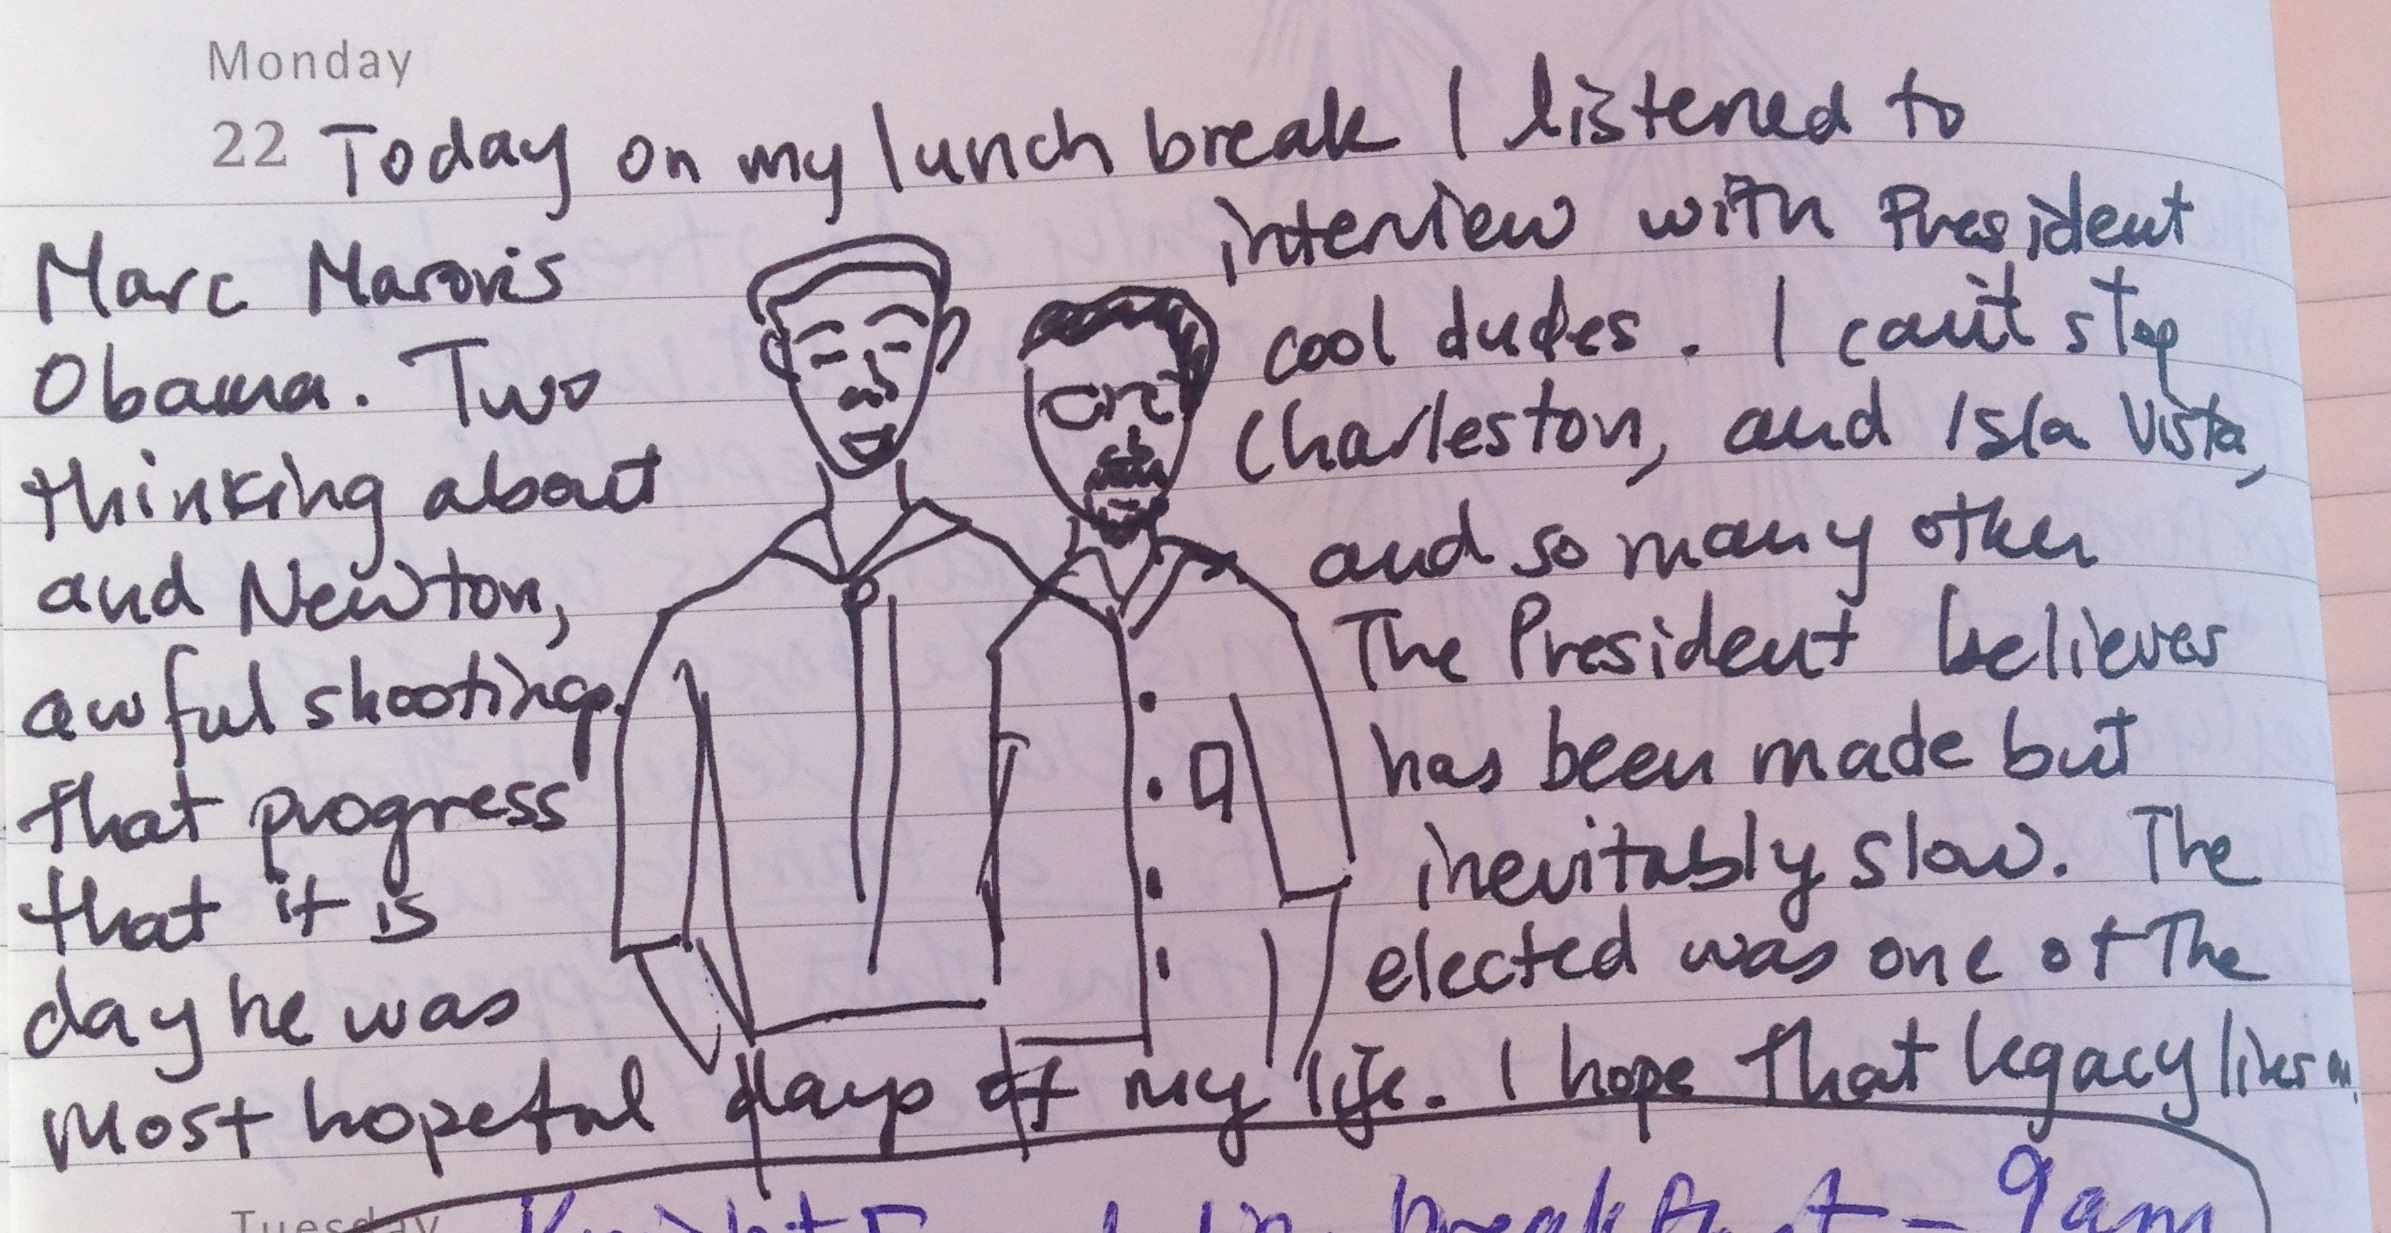 Monday
22 Today on my lunch break I listened to
Marc Maron's interview with President
Obama. Two cool dudes. I can't stop
thinking about Charleston, and Isla Vista,
and Newton, and so many other
awful shootings. The President believes
that progress has been made but
that it is inevitably slow. The
day he was elected was one of the
most hopeful days of my life. I hope that legacy lives on.
Tuesday
Knight breakfast - 9am